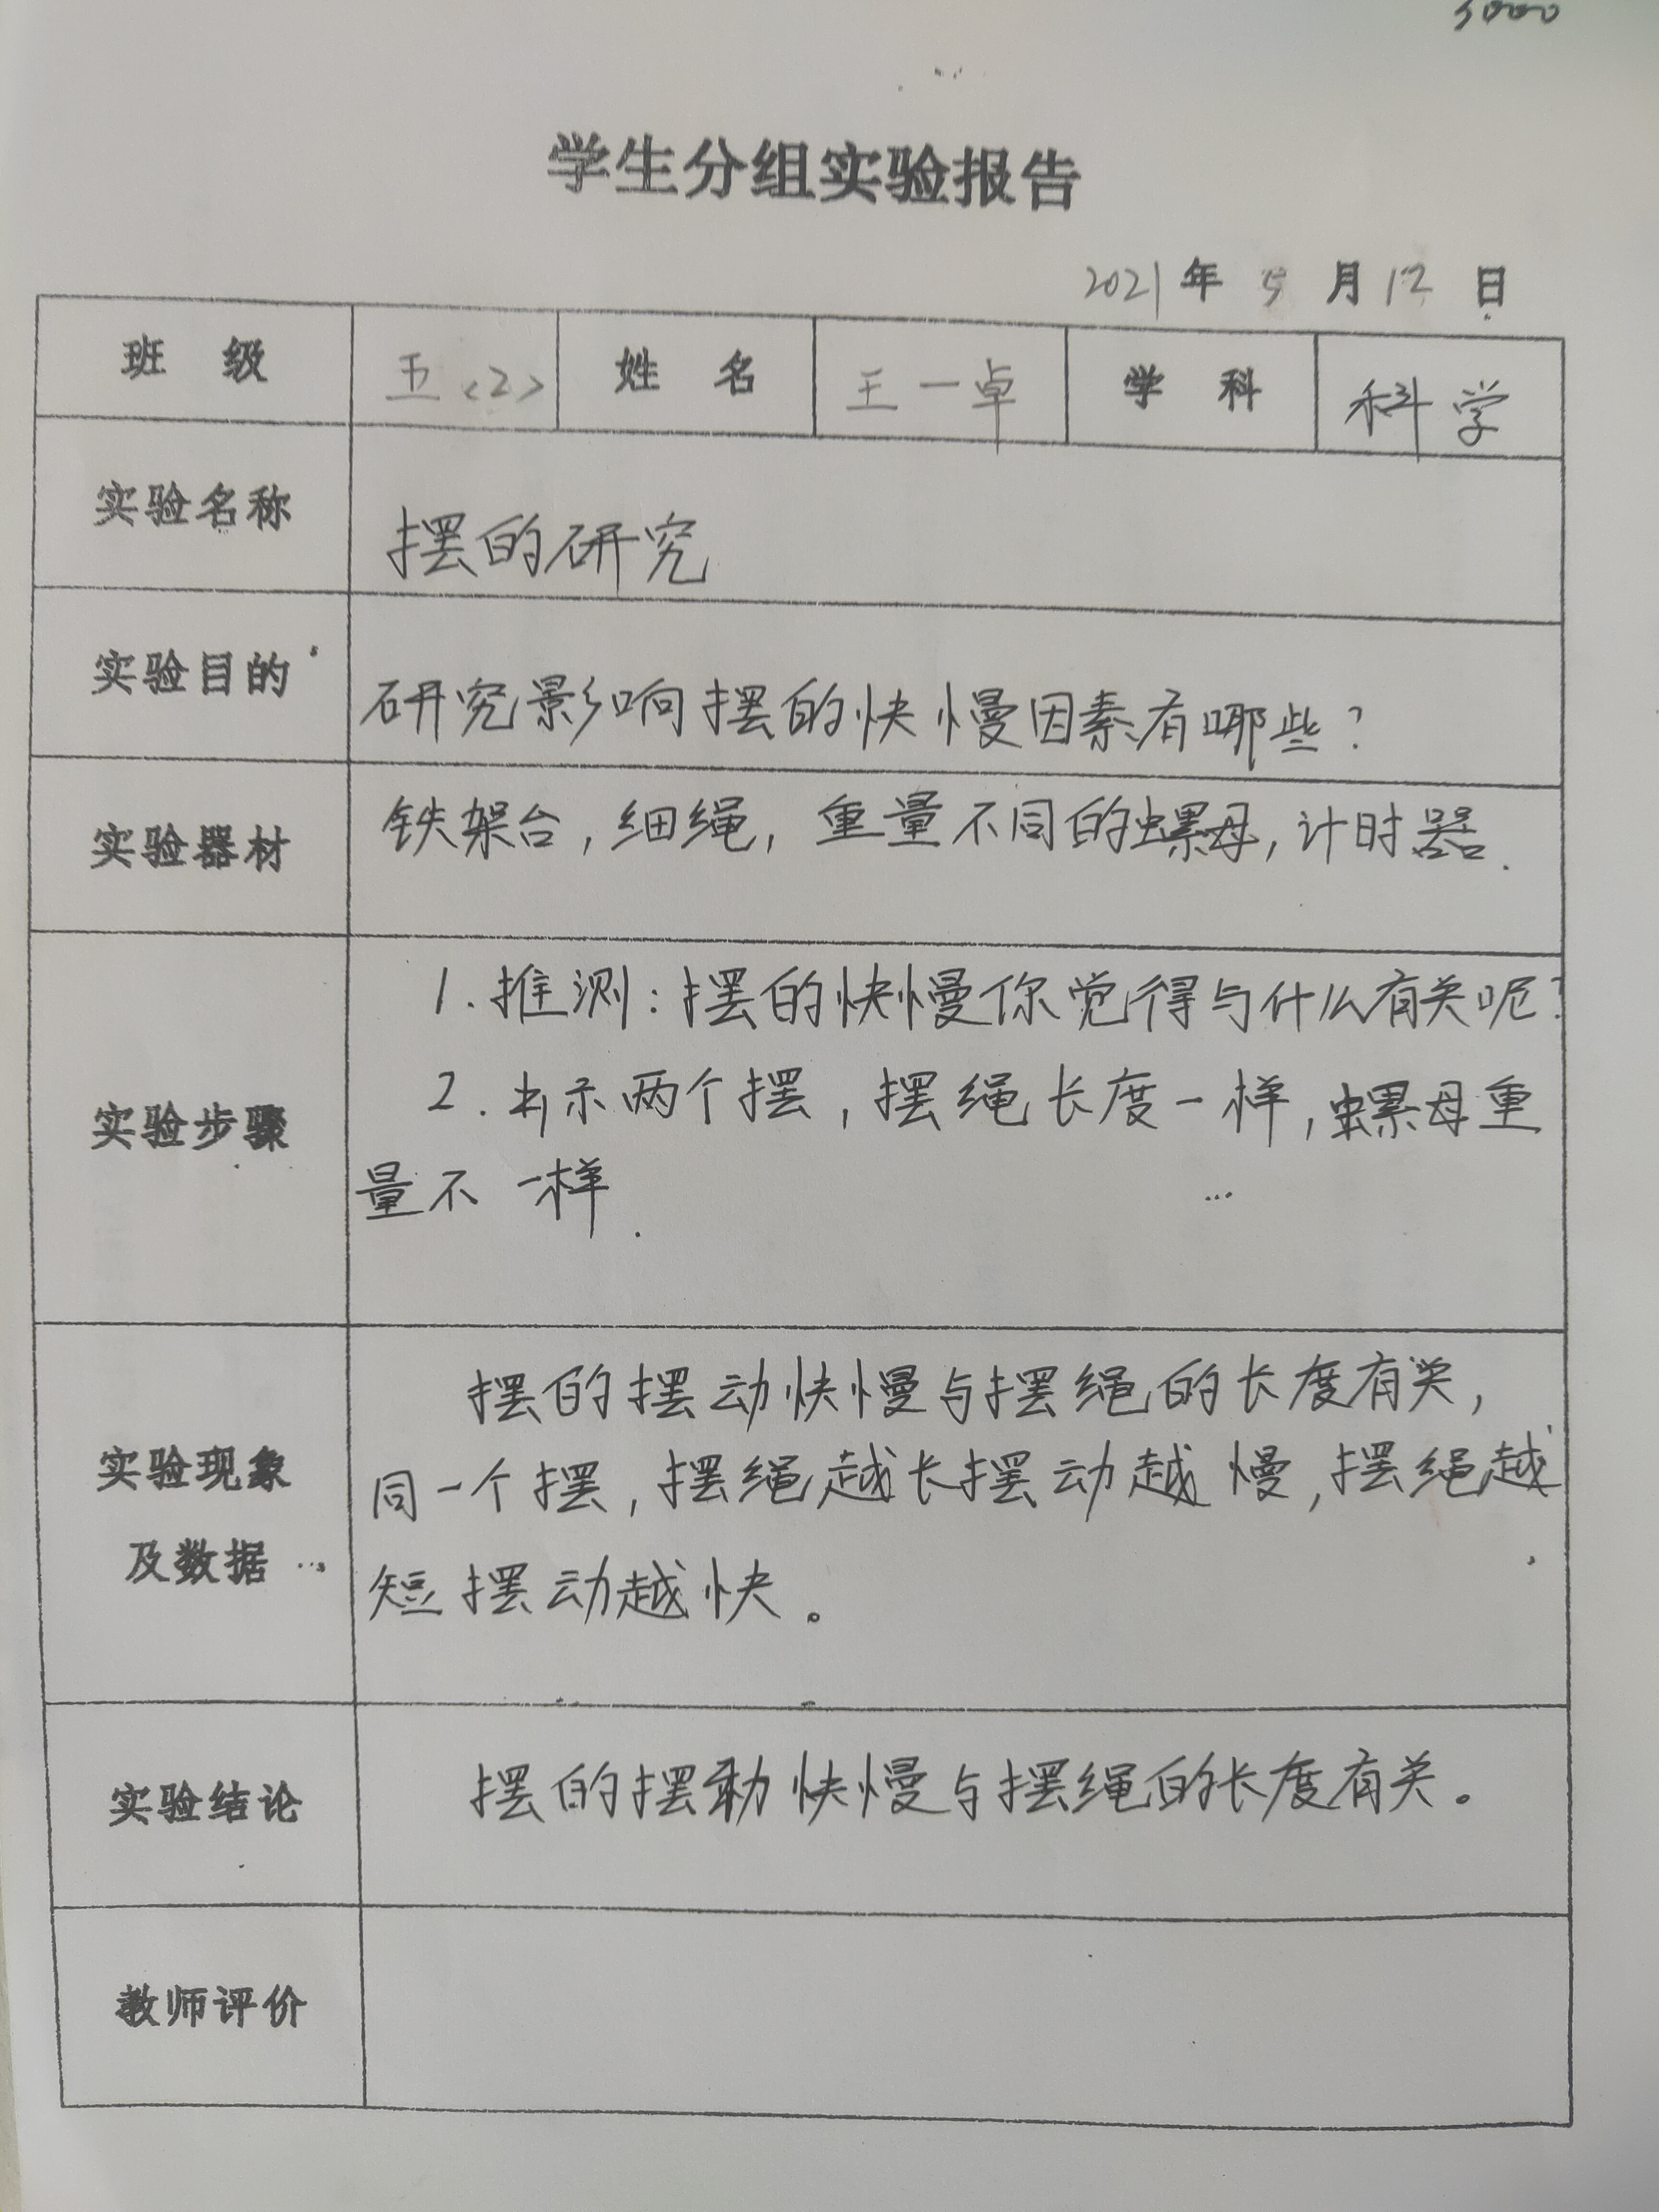 5000
学生分组实验报告
2021年 5 月 12 日
班 级 五<2> 姓 名 王一卓 学 科 科学
实验名称 摆的研究
实验目的 研究影响摆的快慢因素有哪些?
实验器材 铁架台,细绳,重量不同的螺母,计时器.
1.推测:摆的快慢你觉得与什么有关呢?
实验步骤 2.出示两个摆,摆绳长度一样,螺母重
量不一样.
摆的摆动快慢与摆绳的长度有关,
实验现象 同一个摆,摆绳越长摆动越慢,摆绳越
及数据 短摆动越快。
实验结论 摆的摆动快慢与摆绳的长度有关。
教师评价